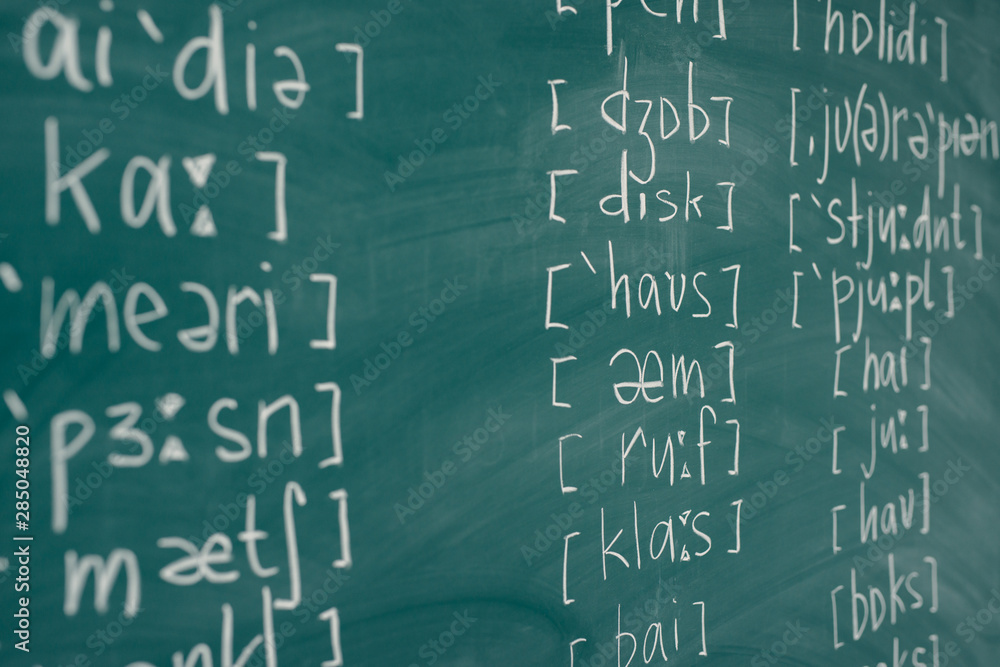 ai`diə]
kɑː]
`meəri]
`pɜːsn]
mætʃ]
[pen]
[dʒɒb]
[disk]
[`haʊs]
[æm]
[ruːf]
[klɑːs]
[bai]
[`hɒlidi]
[ˌjʊ(ə)rə`piən
[`stjuːdnt]
[`pjuːpl]
[hai]
[juː]
[hav]
[bɒks]
Adobe Stock | #285048820